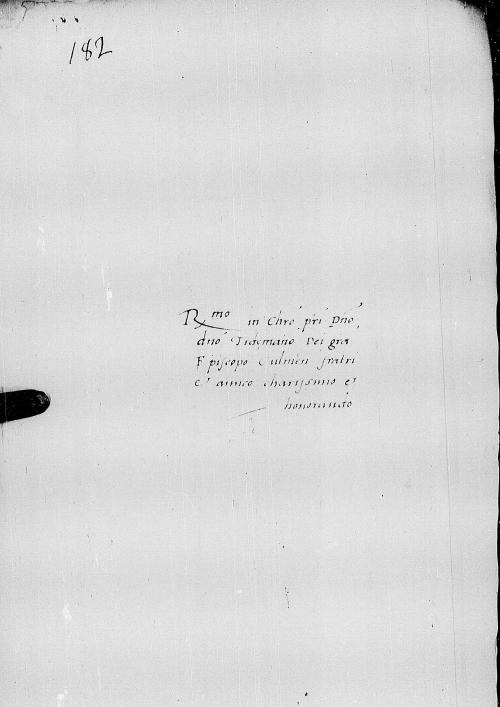 182
Rmo in Chro pri Dno
dno Tidemano Dei gra
Episcopo Culmen fratri
et amico charissimo et
honorando